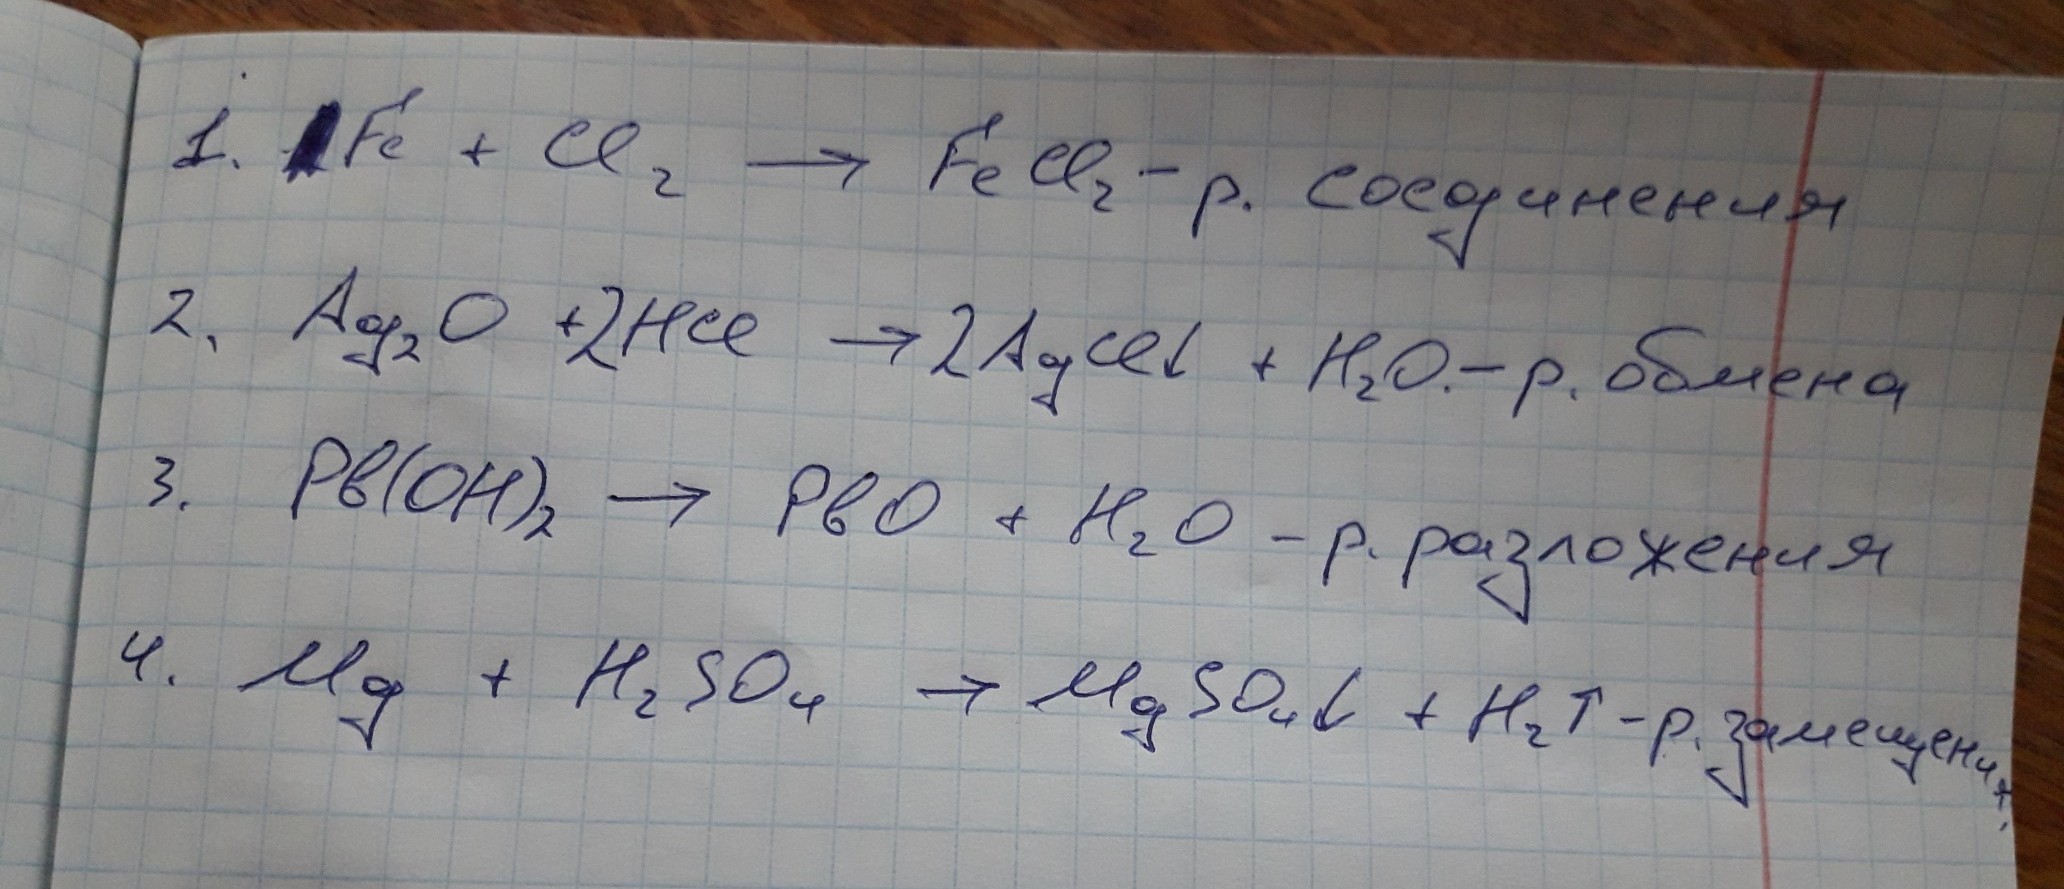 1. Fe + Cl₂ → FeCl₂ - р. соединения
2. Ag₂O + 2HCl → 2AgCl↓ + H₂O. - р. обмена
3. Pb(OH)₂ → PbO + H₂O - р. разложения
4. Mg + H₂SO₄ → MgSO₄↓ + H₂↑ - р. замещения.